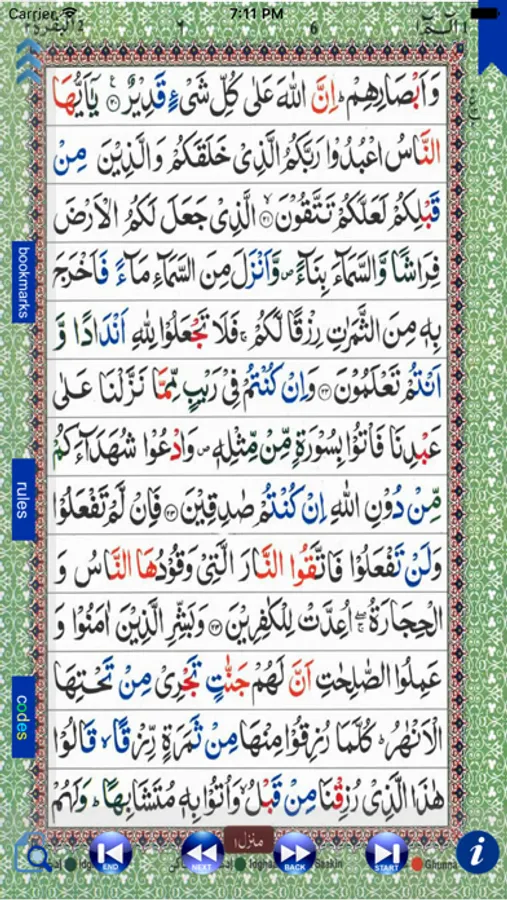 Carrier 7:11 PM
البقرة ٢ ٦ 6 الٓمّٓ ١
وَاَبْصَارِهِمْ ؕ اِنَّ اللّٰهَ عَلٰى كُلِّ شَیْءٍ قَدِیْرٌ ۟ یٰۤاَیُّهَا
النَّاسُ اعْبُدُوْا رَبَّكُمُ الَّذِیْ خَلَقَكُمْ وَالَّذِیْنَ مِنْ
قَبْلِكُمْ لَعَلَّكُمْ تَتَّقُوْنَ ۟ الَّذِیْ جَعَلَ لَكُمُ الْاَرْضَ
فِرَاشًا وَّالسَّمَآءَ بِنَآءً ۪ وَّاَنْزَلَ مِنَ السَّمَآءِ مَآءً فَاَخْرَجَ
بِهٖ مِنَ الثَّمَرٰتِ رِزْقًا لَّكُمْ ۚ فَلَا تَجْعَلُوْا لِلّٰهِ اَنْدَادًا وَّ
اَنْتُمْ تَعْلَمُوْنَ ۟ وَاِنْ كُنْتُمْ فِیْ رَیْبٍ مِّمَّا نَزَّلْنَا عَلٰى
عَبْدِنَا فَاْتُوْا بِسُوْرَةٍ مِّنْ مِّثْلِهٖ ۪ وَادْعُوْا شُهَدَآءَكُمْ
مِّنْ دُوْنِ اللّٰهِ اِنْ كُنْتُمْ صٰدِقِیْنَ ۟ فَاِنْ لَّمْ تَفْعَلُوْا
وَلَنْ تَفْعَلُوْا فَاتَّقُوا النَّارَ الَّتِیْ وَقُوْدُهَا النَّاسُ وَ
الْحِجَارَةُ ۖۚ اُعِدَّتْ لِلْكٰفِرِیْنَ ۟ وَبَشِّرِ الَّذِیْنَ اٰمَنُوْا وَ
عَمِلُوا الصّٰلِحٰتِ اَنَّ لَهُمْ جَنّٰتٍ تَجْرِیْ مِنْ تَحْتِهَا
الْاَنْهٰرُ ؕ كُلَّمَا رُزِقُوْا مِنْهَا مِنْ ثَمَرَةٍ رِّزْقًا ۙ قَالُوْا
هٰذَا الَّذِیْ رُزِقْنَا مِنْ قَبْلُ ۙ وَاُتُوْا بِهٖ مُتَشَابِهًا ؕ وَلَهُمْ
bookmarks
rules
codes
منزل ١
END NEXT BACK START i
Saakin Ghunna